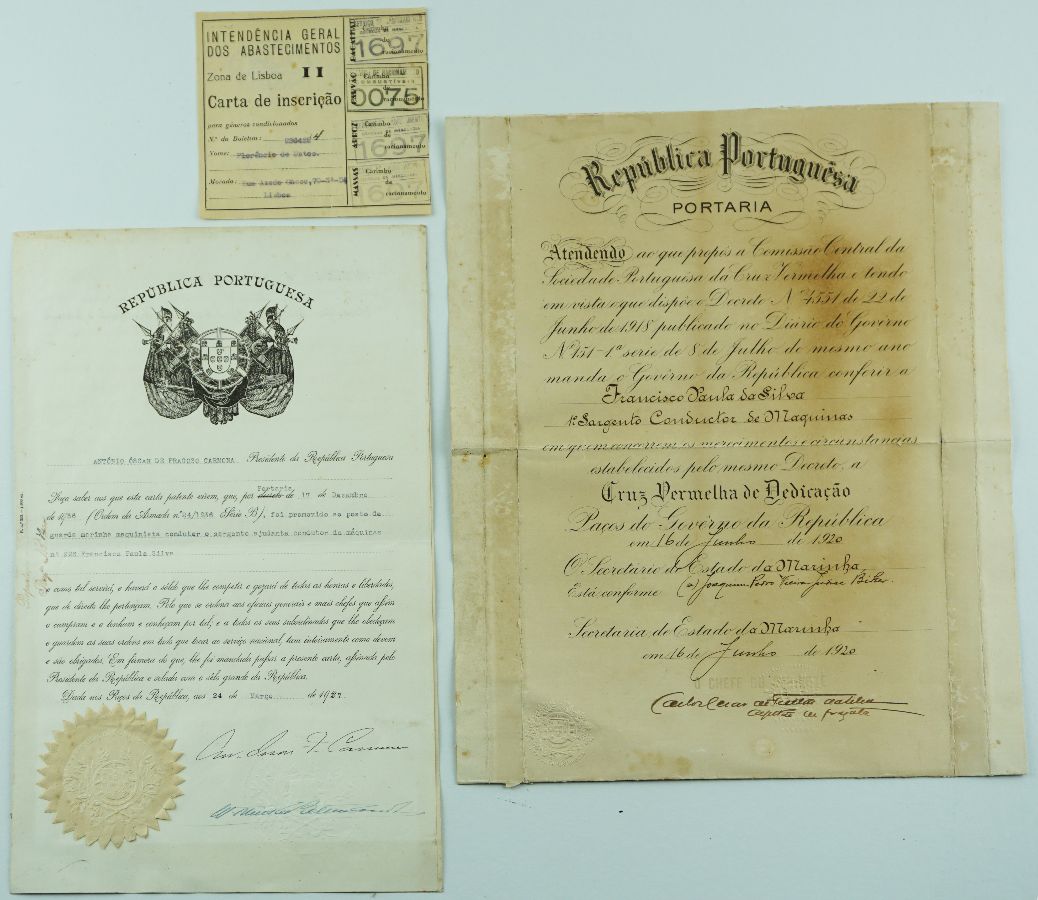 INTENDÊNCIA GERAL
DOS ABASTECIMENTOS
Zona de Lisboa II
Carta de inscrição
para géneros condicionados
N.º do Boletim: 4
Nome: Florêncio de Matos.
Morada:
Lisboa
1697
Carimbo
de
racionamento
CARVÃO
0075
ARROZ
Carimbo
de
racionamento
1697
MASSAS
Carimbo
de
racionamento
REPÚBLICA PORTUGUESA
ANTÓNIO ÓSCAR DE FRAGOSO CARMONA, Presidente da República Portuguesa
Portaria
Faço saber aos que esta carta patente virem, que, por decreto de 17 de Dezembro
de 1936 (Ordem da Armada nº 24/1936 Série B), foi promovido ao posto de
guarda marinha maquinista condutor o sargento ajudante condutor de máquinas
Francisco Paula Silva
e como tal servirá, e haverá o sôldo que lhe competir e gozará de todas as honras e liberdades,
que de direito lhe pertençam. Pelo que se ordena aos oficiais generais e mais chefes que assim
o cumpram e o tenham e conheçam por tal; e a todos os seus subordinados que lhe obedeçam
e guardem as suas ordens em tudo que tocar ao serviço nacional, tam inteiramente como devem
e são obrigados. Em firmeza do que, lhe foi mandado passar a presente carta, assinada pelo
Presidente da República e selada com o sêlo grande da República.
Dada nos Paços da República, aos 24 de Março de 1937.
República Portuguêsa
PORTARIA
Atendendo ao que propôs a Comissão Central da
Sociedade Portuguêsa da Cruz Vermelha e tendo
em vista o que dispõe o Decreto Nº 4551 de 22 de
Junho de 1918 publicado no Diário do Govêrno
Nº 151-1ª serie de 8 de Julho do mesmo ano
manda o Govêrno da República conferir a
Francisco Paula da Silva
1º Sargento Conductor de Maquinas
em quem concorrem os merecimentos e circunstancias
estabelecidos pelo mesmo Decreto, a
Cruz Vermelha de Dedicação
Paços do Govêrno da República
em 16 de Junho de 1920
O Secretário de Estado da Marinha
Está conforme (a) Joaquim Pedro Vieira Judice Biker.
Secretaria de Estado da Marinha
em 16 de Junho de 1920
O CHEFE DO
Capitão de fragata